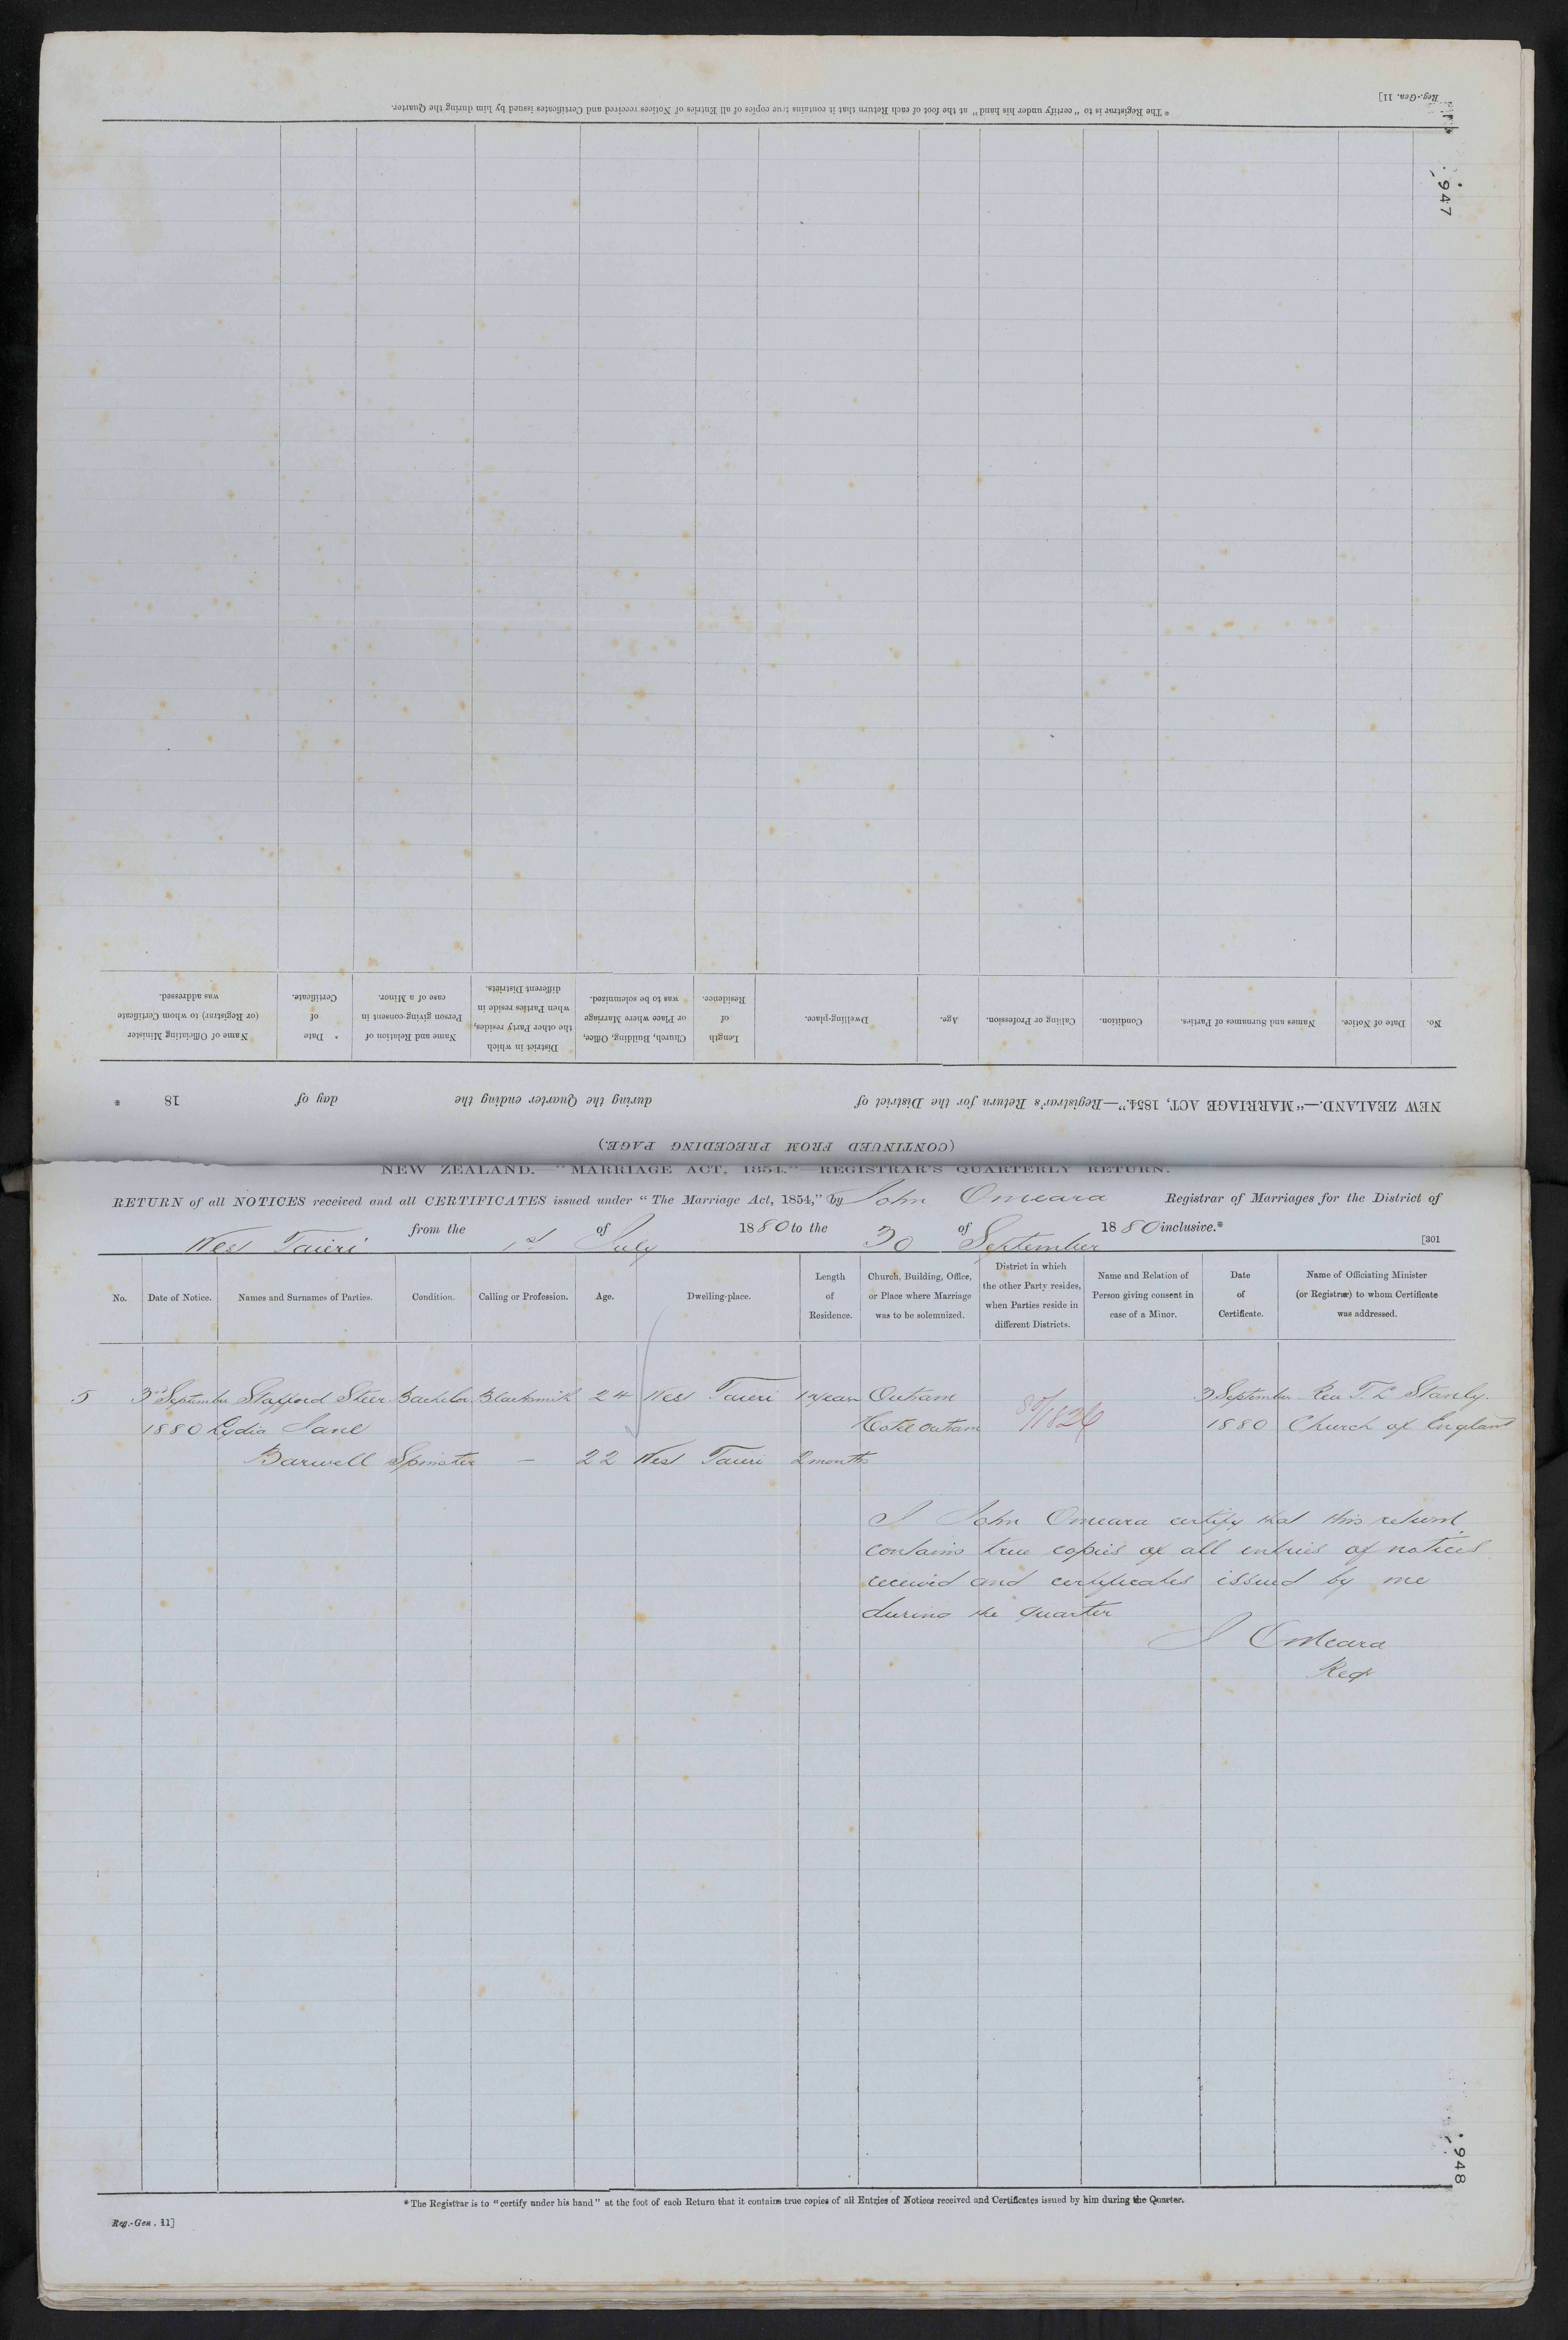 Reg.-Gen. 11]
* The Registrar is to "certify under his hand" at the foot of each Return that it contains true copies of all Entries of Notices received and Certificates issued by him during the Quarter.
947
(CONTINUED FROM PRECEDING PAGE.)
NEW ZEALAND.—"MARRIAGE ACT, 1854."—Registrar's Return for the District of during the Quarter ending the day of 18 *
No.
Date of Notice.
Names and Surnames of Parties.
Condition.
Calling or Profession.
Age.
Dwelling-place.
Length
of
Residence.
Church, Building, Office,
or Place where Marriage
was to be solemnized.
District in which
the other Party resides,
when Parties reside in
different Districts.
Name and Relation of
Person giving consent in
case of a Minor.
Date
of
Certificate.
Name of Officiating Minister
(or Registrar) to whom Certificate
was addressed.
NEW ZEALAND.—"MARRIAGE ACT, 1854."—REGISTRAR'S QUARTERLY RETURN.
RETURN of all NOTICES received and all CERTIFICATES issued under "The Marriage Act, 1854," by John Omeara Registrar of Marriages for the District of
West Taieri from the 1st of July 1880 to the 30 of September 1880 inclusive.*
[301
No.
Date of Notice.
Names and Surnames of Parties.
Condition.
Calling or Profession.
Age.
Dwelling-place.
Length
of
Residence.
Church, Building, Office,
or Place where Marriage
was to be solemnized.
District in which
the other Party resides,
when Parties reside in
different Districts.
Name and Relation of
Person giving consent in
case of a Minor.
Date
of
Certificate.
Name of Officiating Minister
(or Registrar) to whom Certificate
was addressed.
5 3rd September Stafford Steer Bachelor Blacksmith 24 West Taieri 1 year Outram 3 September Rev T. L. Stanly.
1880 Lydia Jane Hotel Outram 80/1826 1880 Church of England
Barwell Spinster — 22 West Taieri 2 months
I John Omeara certify that this return
contains true copies of all entries of notices
received and certificates issued by me
during the quarter
J OMeara
Reg
948
* The Registrar is to "certify under his hand" at the foot of each Return that it contains true copies of all Entries of Notices received and Certificates issued by him during the Quarter.
Reg.-Gen. 11]